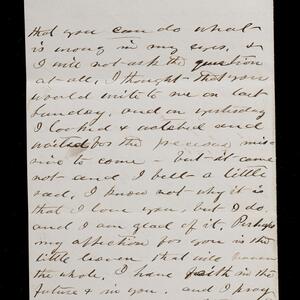 that you can do what
is wrong in my eyes. &
I will not ask the question
at all. I thought that you
would write to me on last
Sunday, and on yesterday
I looked & watched and
waited for the precious mis-
sive to come – but it came
not and I felt a little
sad. I know not why it is
that I love you, but I do.
and I am glad of it. Perhaps
my affection for you is the
little leaven that will leaven
the whole. I have faith in the
future & in you. and I pray